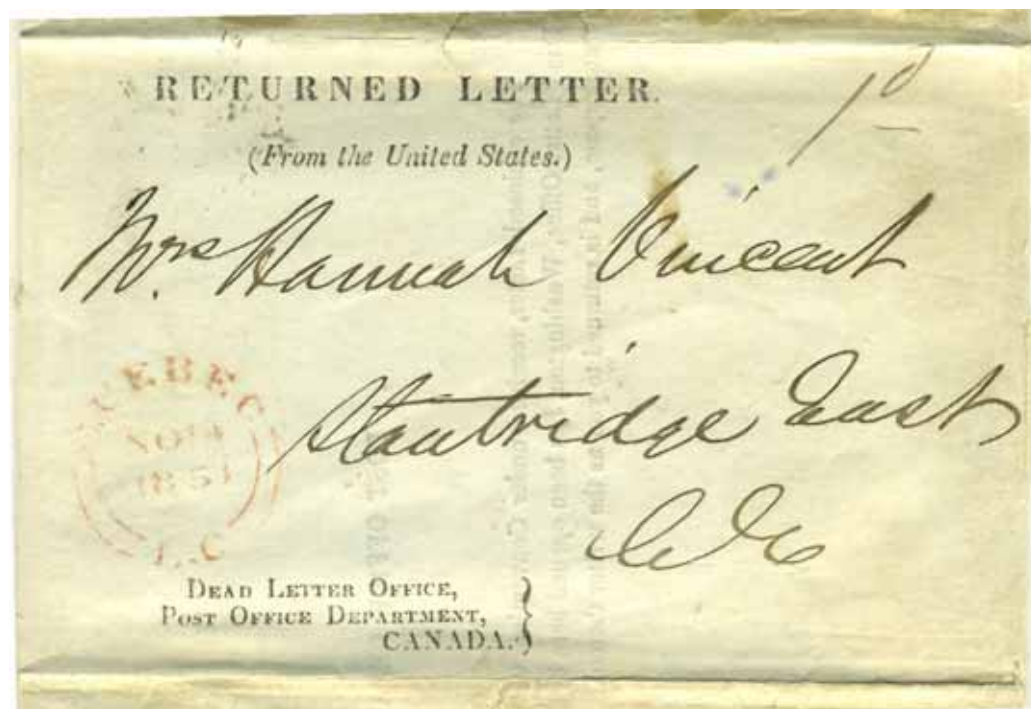 1d
RETURNED LETTER.
(From the United States.)
Mrs. Hannah Vincent
Stanbridge East
QUEBEC
NO
1851
L.C
DEAD LETTER OFFICE,
POST OFFICE DEPARTMENT,
CANADA.